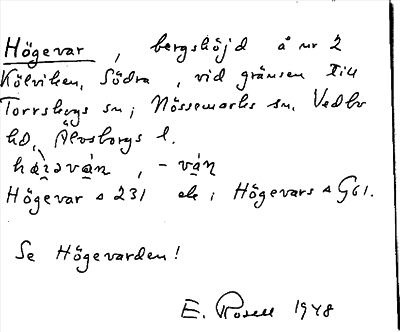 Högevar, bergshöjd å nr 2
Kölviken, Södra, vid gränsen till
Torrskogs sn; Nössemarks sn, Vedbo
hd, Älvsborgs l.
, - ván
Högevar ▵ 231 ek; Högevars ▵ G61.
Se Högevarden!
E. Rosell 1948